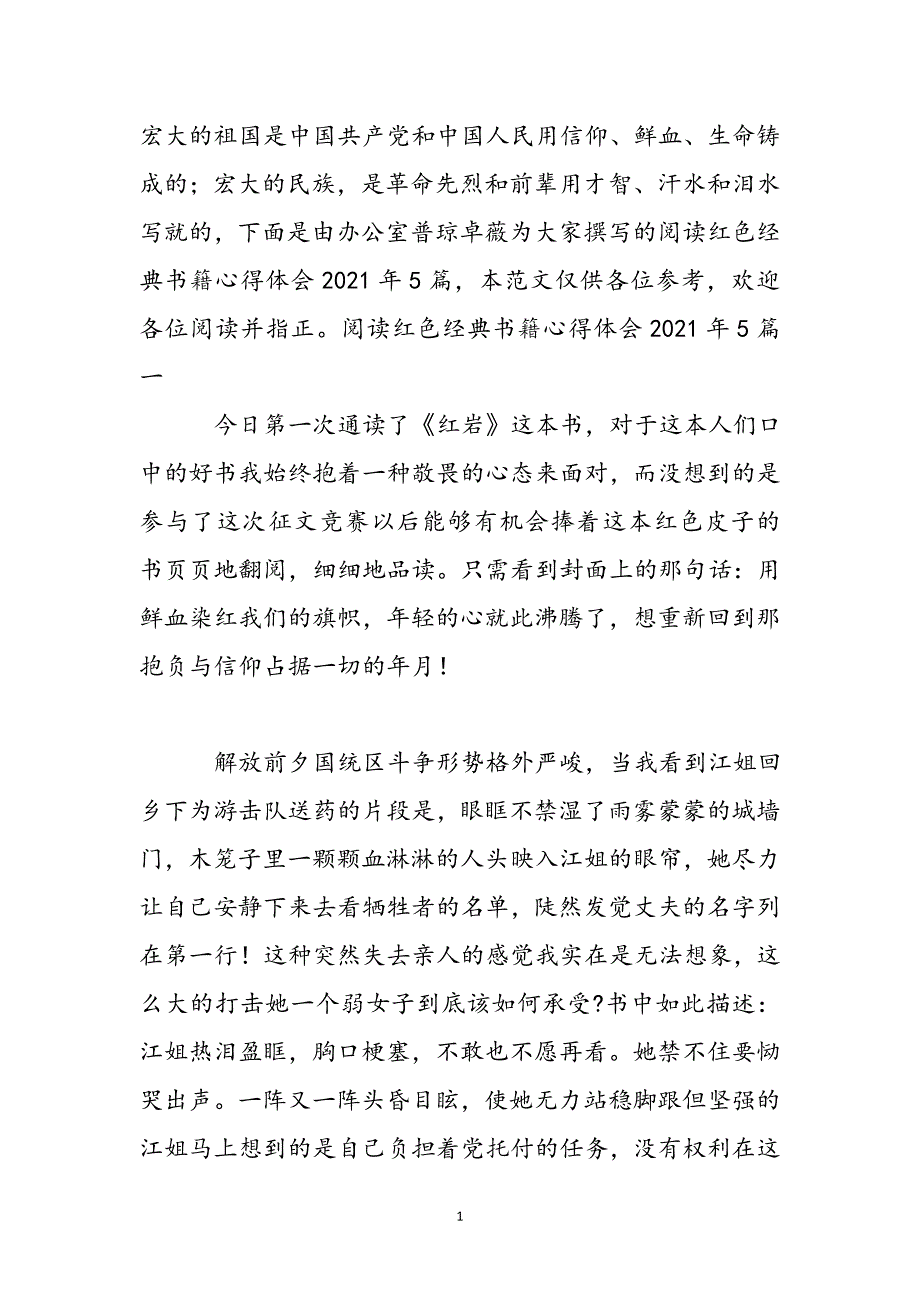 宏大的祖国是中国共产党和中国人民用信仰、鲜血、生命铸
成的；宏大的民族，是革命先烈和前辈用才智、汗水和泪水
写就的，下面是由办公室普琼卓薇为大家撰写的阅读红色经
典书籍心得体会 2021 年 5 篇，本范文仅供各位参考，欢迎
各位阅读并指正。阅读红色经典书籍心得体会 2021 年 5 篇
一
今日第一次通读了《红岩》这本书，对于这本人们口
中的好书我始终抱着一种敬畏的心态来面对，而没想到的是
参与了这次征文竞赛以后能够有机会捧着这本红色皮子的
书页页地翻阅，细细地品读。只需看到封面上的那句话：用
鲜血染红我们的旗帜，年轻的心就此沸腾了，想重新回到那
抱负与信仰占据一切的年月！
解放前夕国统区斗争形势格外严峻，当我看到江姐回
乡下为游击队送药的片段是，眼眶不禁湿了雨雾蒙蒙的城墙
门，木笼子里一颗颗血淋淋的人头映入江姐的眼帘，她尽力
让自己安静下来去看牺牲者的名单，陡然发觉丈夫的名字列
在第一行！这种突然失去亲人的感觉我实在是无法想象，这
么大的打击她一个弱女子到底该如何承受?书中如此描述：
江姐热泪盈眶，胸口梗塞，不敢也不愿再看。她禁不住要恸
哭出声。一阵又一阵头昏目眩，使她无力站稳脚跟但坚强的
江姐马上想到的是自己负担着党托付的任务，没有权利在这
1